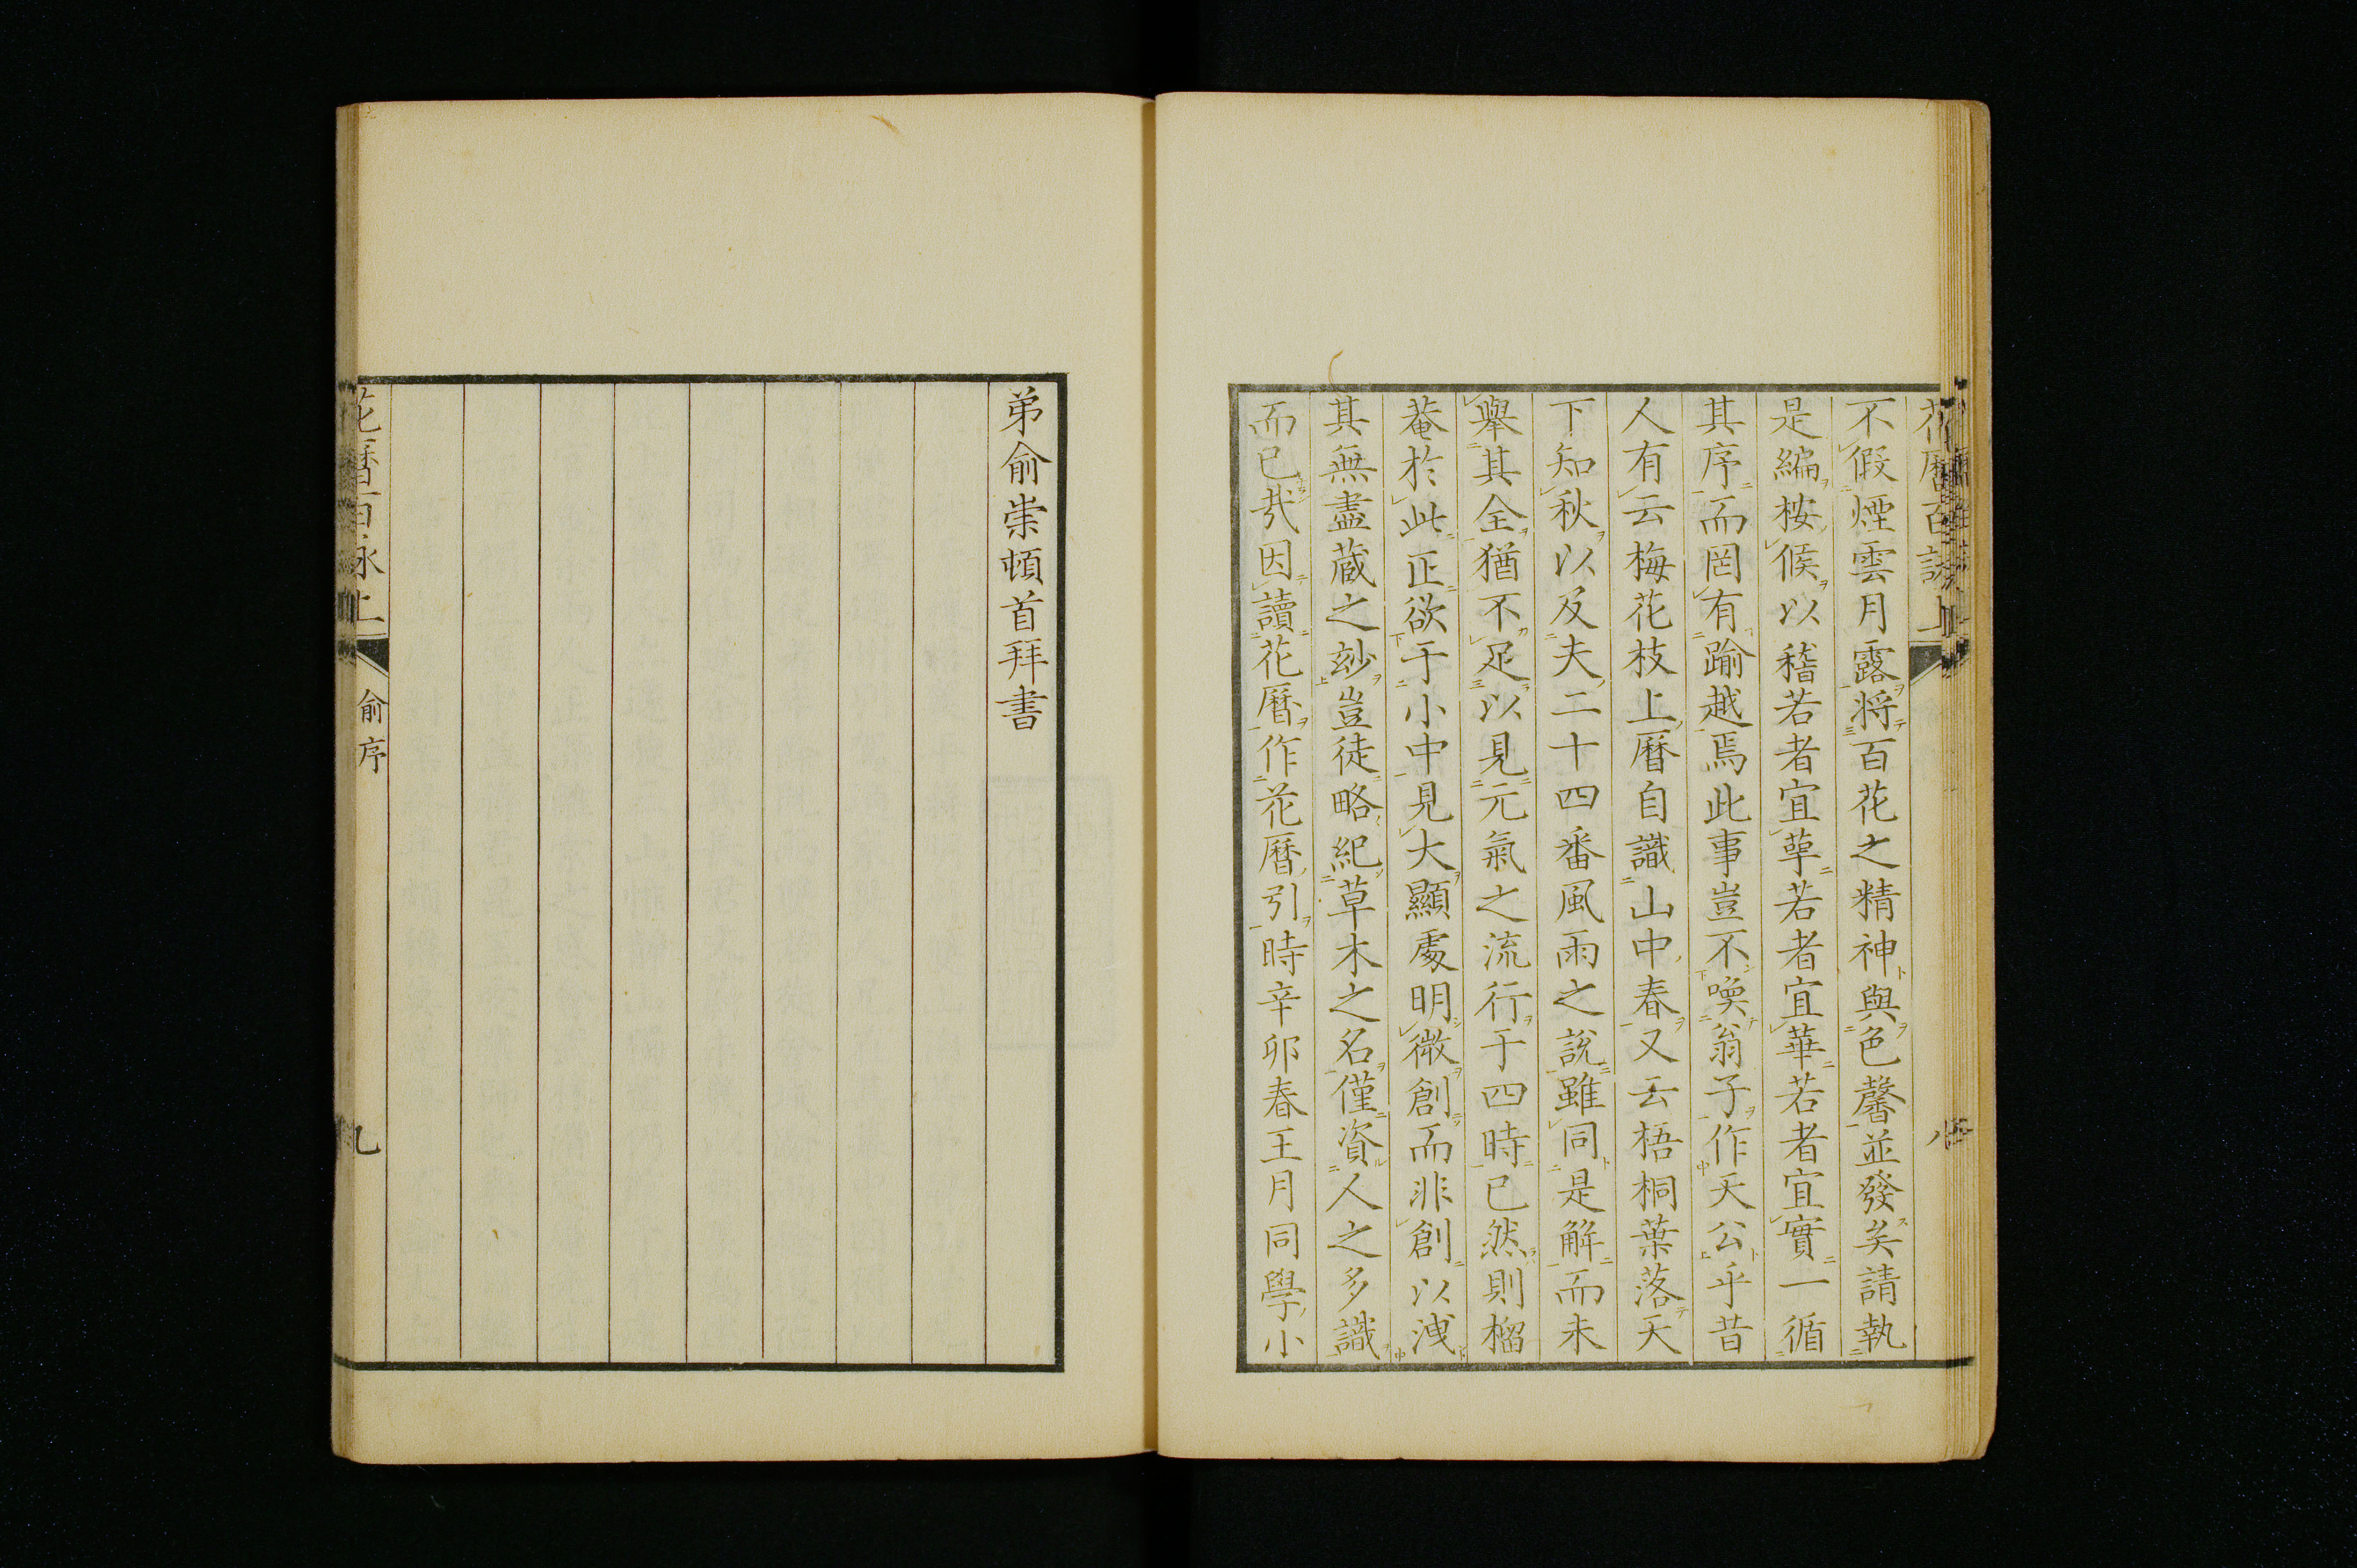 花曆百詠上
不假煙雲月露将百花之精神與色馨並發矣請執
是編按候以稽若者宜蕚若者宜華若者宜實一循
其序而罔有踰越焉此事豈不喚翁子作天公乎昔
人有云梅花枝上曆自識山中春又云梧桐葉落天
下知秋以及夫二十四番風雨之說雖同是解而未
舉其全猶不足以見元氣之流行于四時已然則榴
菴於此正欲于小中見大顯處明微創而非創以洩
其無盡蔵之玅豈徒略紀草木之名僅資人之多識
而已㢤因讀花曆作花曆引時辛卯春王月同學小
弟俞崇頓首拜書
花曆百詠上
俞序
九